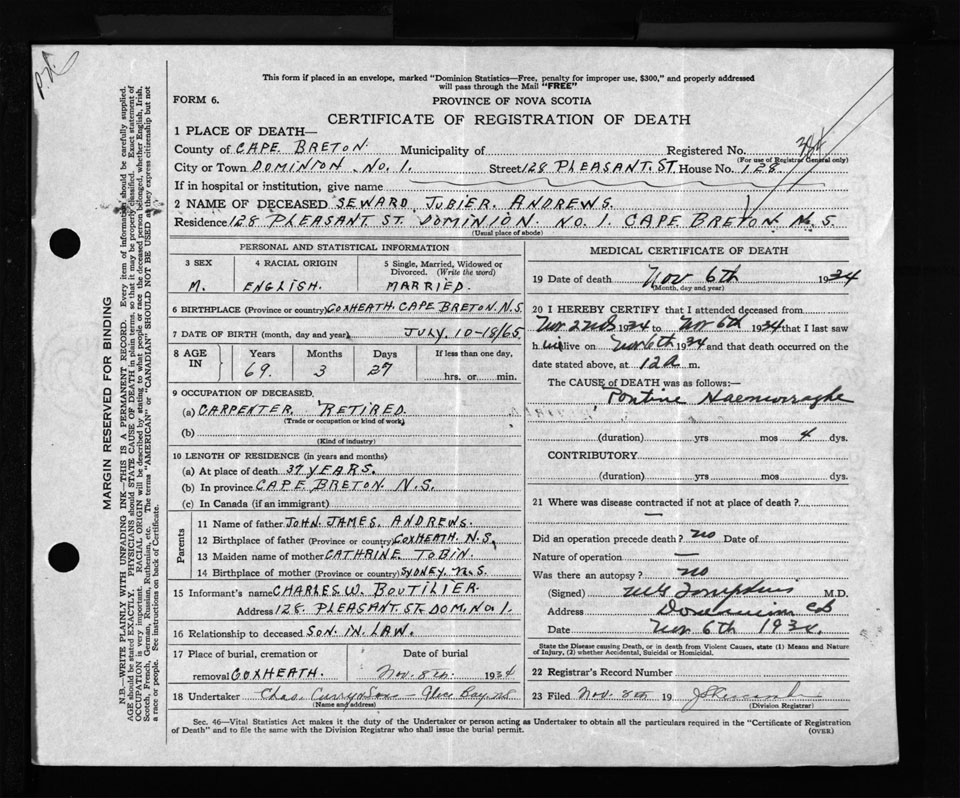 This form if placed in an envelope, marked "Dominion Statistics—Free, penalty for improper use, $300," and properly addressed
will pass through the Mail "FREE"
FORM 6.
PROVINCE OF NOVA SCOTIA
CERTIFICATE OF REGISTRATION OF DEATH
1 PLACE OF DEATH—
County of CAPE BRETON Municipality of Registered No.
(For use of Registrar General only)
City or Town DOMINION No. 1. Street 128 PLEASANT. ST. House No. 128
If in hospital or institution, give name
2 NAME OF DECEASED SEWARD JUBIER. ANDREWS.
Residence 128 PLEASANT ST. DOMINION. NO. 1. CAPE BRETON N. S.
(Usual place of abode)
PERSONAL AND STATISTICAL INFORMATION
3 SEX 4 RACIAL ORIGIN 5 Single, Married, Widowed or Divorced. (Write the word)
M. ENGLISH. MARRIED.
6 BIRTHPLACE (Province or country) COXHEATH. CAPE BRETON. N.S.
7 DATE OF BIRTH (month, day and year) JULY. 10-18/65
8 AGE IN Years Months Days If less than one day,
69. 3 27 hrs. or min.
9 OCCUPATION OF DECEASED
(a) CARPENTER. RETIRED.
(Trade or occupation or kind of work)
(b)
(Kind of industry)
10 LENGTH OF RESIDENCE (in years and months)
(a) At place of death 37 YEARS.
(b) In province CAPE BRETON N.S.
(c) In Canada (if an immigrant)
Parents
11 Name of father JOHN JAMES. ANDREWS.
12 Birthplace of father (Province or country) COXHEATH. N.S.
13 Maiden name of mother CATHRINE TOBIN.
14 Birthplace of mother (Province or country) SYDNEY. N.S.
15 Informant's name CHARLES W. BOUTILIER
Address 128. PLEASANT. ST. DOM. No. 1.
16 Relationship to deceased SON IN LAW.
17 Place of burial, cremation or removal COXHEATH. Date of burial Nov. 8th. 1934
18 Undertaker Chas. Curry & Son - Glace Bay NS
(Name and address)
MEDICAL CERTIFICATE OF DEATH
19 Date of death Nov 6th 1934
(Month, day and year)
20 I HEREBY CERTIFY that I attended deceased from
Nov 2nd 1934 to Nov 6th 1934 that I last saw
him alive on Nov 6th 1934 and that death occurred on the
date stated above, at 12 a m.
The CAUSE of DEATH was as follows:—
Pontine Haemorraghe
(duration) yrs mos 4 dys.
CONTRIBUTORY
(duration) yrs mos dys.
21 Where was disease contracted if not at place of death?
—
Did an operation precede death? no Date of
Nature of operation —
Was there an autopsy? no
(Signed) Tompkins M.D.
Address Dominion CB
Date Nov 6th 1934.
State the Disease causing Death, or in death from Violent Causes, state (1) Means and Nature
of Injury, (2) whether Accidental, Suicidal or Homicidal.
22 Registrar's Record Number
23 Filed Nov. 8th 19
(Division Registrar)
Sec. 46—Vital Statistics Act makes it the duty of the Undertaker or person acting as Undertaker to obtain all the particulars required in the "Certificate of Registration
of Death" and to file the same with the Division Registrar who shall issue the burial permit.
(OVER)
MARGIN RESERVED FOR BINDING
N.B.—WRITE PLAINLY WITH UNFADING INK—THIS IS A PERMANENT RECORD. Every item of information should be carefully supplied.
AGE should be stated EXACTLY. PHYSICIANS should STATE CAUSE OF DEATH in plain terms, so that it may be properly classified. Exact statement of
OCCUPATION is very important. RACIAL ORIGIN will be described by stating to what people or race the deceased person belonged, whether English, Irish,
Scotch, French, German, Russian, Ruthenian, etc. The terms "AMERICAN" or "CANADIAN" SHOULD NOT BE USED as they express citizenship but not
a race or people. See instructions on back of Certificate.